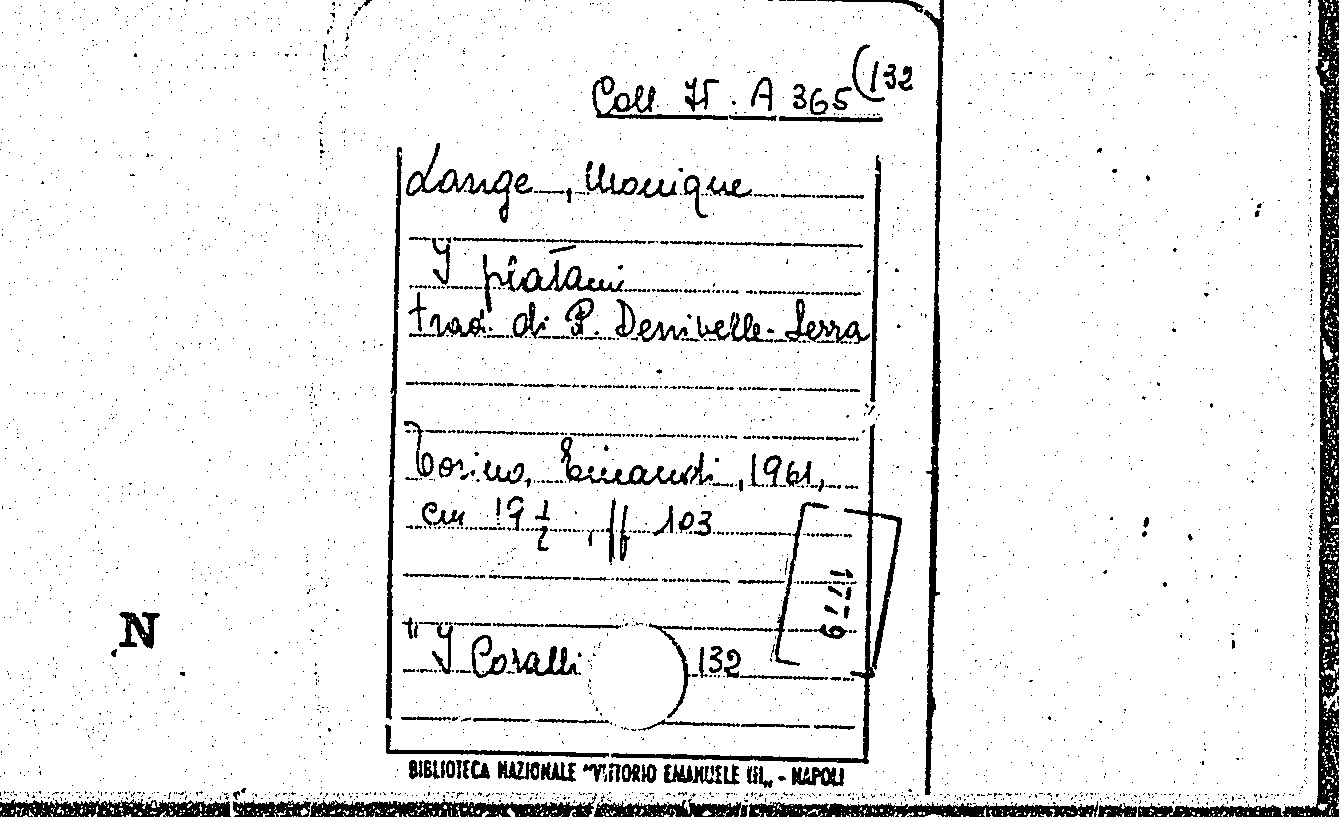 Coll. It. A 365 (132
Lange, Monique
I platani
trad. di P. Denivelle-Serra
Torino, Einaudi, 1961,
cm 19 1/2, pp 103
1779
N
"I Coralli 132
BIBLIOTECA NAZIONALE "VITTORIO EMANUELE III„ - NAPOLI